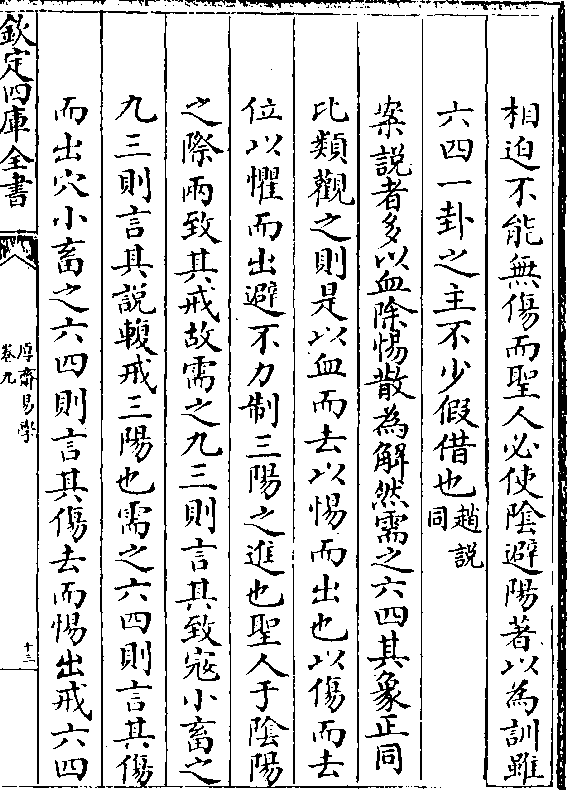 相迫不能無傷而聖人必使陰避陽著以為訓雖
六四一卦之主不少假借也趙說同
案說者多以血除惕散為解然需之六四其象正同
比類觀之則是以血而去以惕而出也以傷而去
位以懼而出避不力制三陽之進也聖人于陰陽
之際兩致其戒故需之九三則言其致寇小畜之
九三則言其說輹戒三陽也需之六四則言其傷
而出穴小畜之六四則言其傷去而惕出戒六四
欽定四庫全書
厚齋易學
卷九
十三